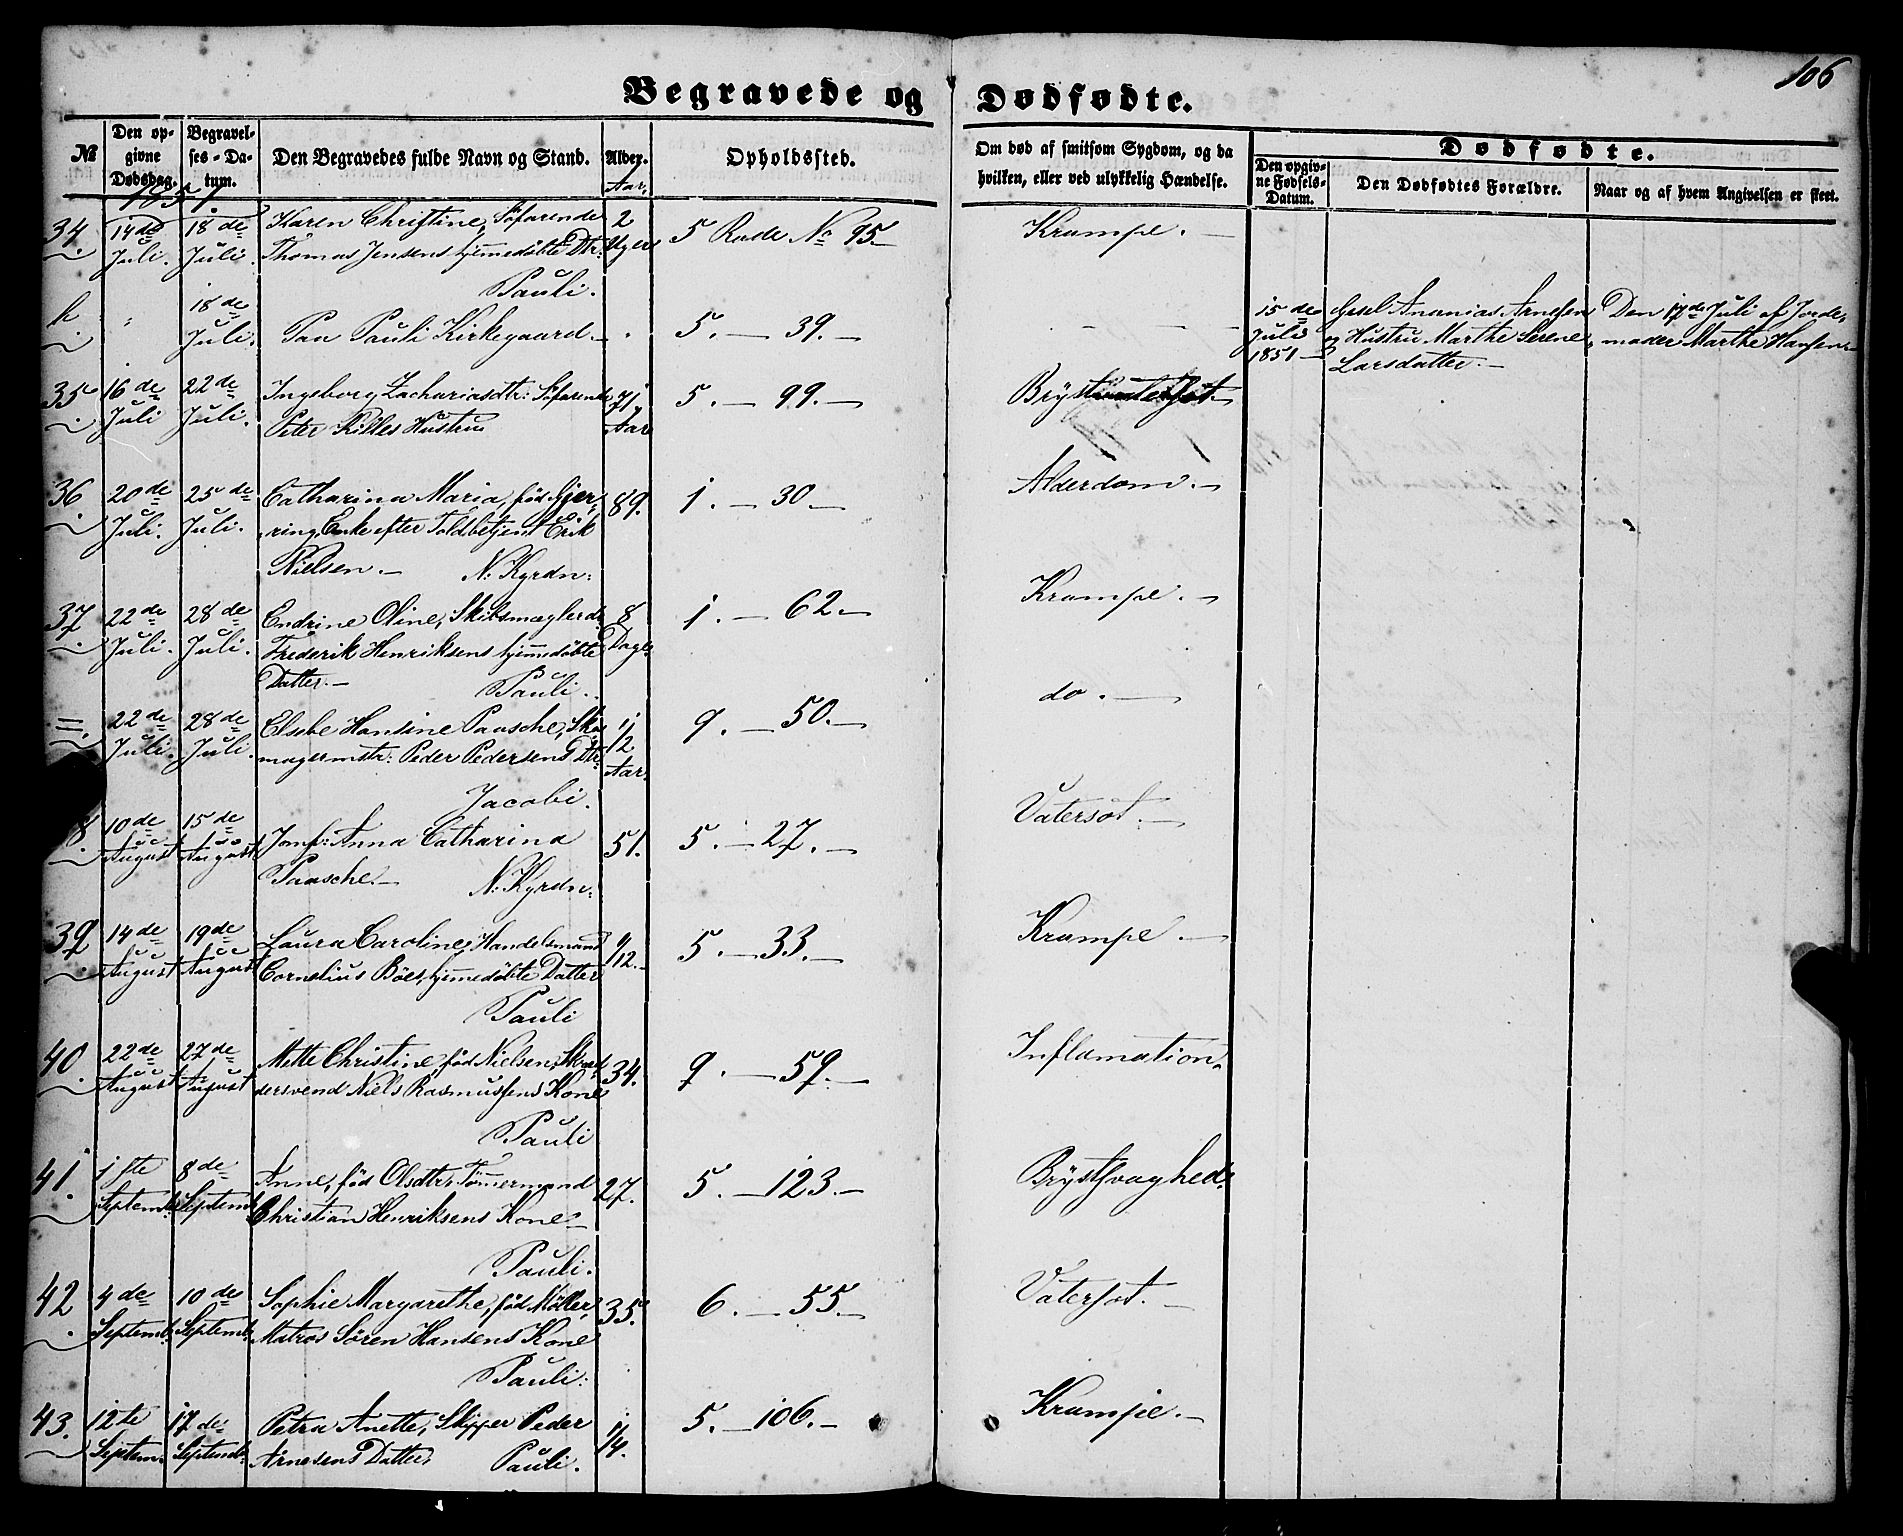 106
Begravede og Dødfødte.
№
Den op-
givne
Dødsdag.
Begravel-
ses-Da-
tum.
Den Begravedes fulde Navn og Stand.
Alder.
Aar.
Opholdssted.
Om død af smitsom Sygdom, og da
hvilken, eller ved ulykkelig Hændelse.
Dødfødte.
Den opgiv-
ne Fødsels-
Datum.
Den Dødfødtes Forældre.
Naar og af hvem Angivelsen er skeet.
1851
34. 14de Juli. 18de Juli. Karen Christine, Söfarende 2 5 Rode No 95. Krampe.
Thomas Jensens hjemmedöbte Dtr: Uger
Pauli.
18de Juli. Paa Pauli Kirkegaard 5. 39. 15de Juli 1851 Ananias Arnesen Den 17de Juli af Jorde-
og Hustru Marthe Serene moder Marthe Hansen
Larsdatter.
35 16de Juli 22de Juli. Ingeborg Zachariasdtr: Söfarende 71 5. 99.
Peter Killes Hustru Aar
36. 20de Juli. 25de Juli. Catharina Maria, föd Gjer- 89. 1. 30 Alderdom.
ring, Enke efter Toldbetjent Erik
Nielsen. N: Kyrdn:
37 22de Juli. 28de Juli. Endrine Oline, Skibsmægler 8 1. 62. Krampe.
Frederik Henriksens hjemmedöbte Dage
Datter. Pauli.
=. 22de Juli. 28de Juli. Elsebe Hansine Paasche, Sko- 1/12 9. 50. do.
magermstr: Peder Pedersens Dtr: Aar.
Jacobi.
8. 10de August 15de August Jomf: Anna Catharina 51. 5. 27. Vatersot.
Paasche. N: Kyrdn:
39 14de August 19de August Laura Caroline, Handelsmand 9/12. 5. 33. Krampe.
Cornelius Böes, hjemmedöbte Datter
Pauli
40. 22de August 27de August Mette Christine, föd Nielsen, Skræd- 34. 9. 59. Inflamation.
dersvend Niels Rasmussens Kone
Pauli
41. 1ste Septemb: 8de Septemb Anne, föd Olsdtr, Tömmermand 27. 5. 123. Brystsvaghed.
Christian Henriksens Kone
Pauli.
42. 4de Septemb: 10de Septemb: Sophie Margarethe, föd Möller, 35. 6. 55. Vatersot.
Matros Sören Hansens Kone
Pauli.
43. 12te Septem. 17de Septemb: Petra Anette, Skipper Peder 1/4. 5. 106. Krampe.
Arnesens Datter. Pauli.